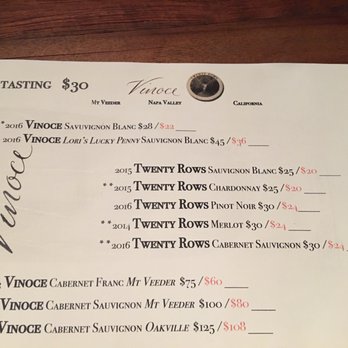 TASTING $30
Vinoce
MT VEEDER NAPA VALLEY CALIFORNIA
*2016 VINOCE SAVUVIGNON BLANC $28/$22
2016 VINOCE LORI'S LUCKY PENNY SAUVIGNON BLANC $45/$36
Vinoce
2015 TWENTY ROWS SAUVIGNON BLANC $25/$20
**2015 TWENTY ROWS CHARDONNAY $25/$20
2016 TWENTY ROWS PINOT NOIR $30/$24
**2014 TWENTY ROWS MERLOT $30/$24
**2016 TWENTY ROWS CABERNET SAUVIGNON $30/$24
VINOCE CABERNET FRANC MT VEEDER $75/$60
VINOCE CABERNET SAUVIGNON MT VEEDER $100/$80
VINOCE CABERNET SAUVIGNON OAKVILLE $125/$108